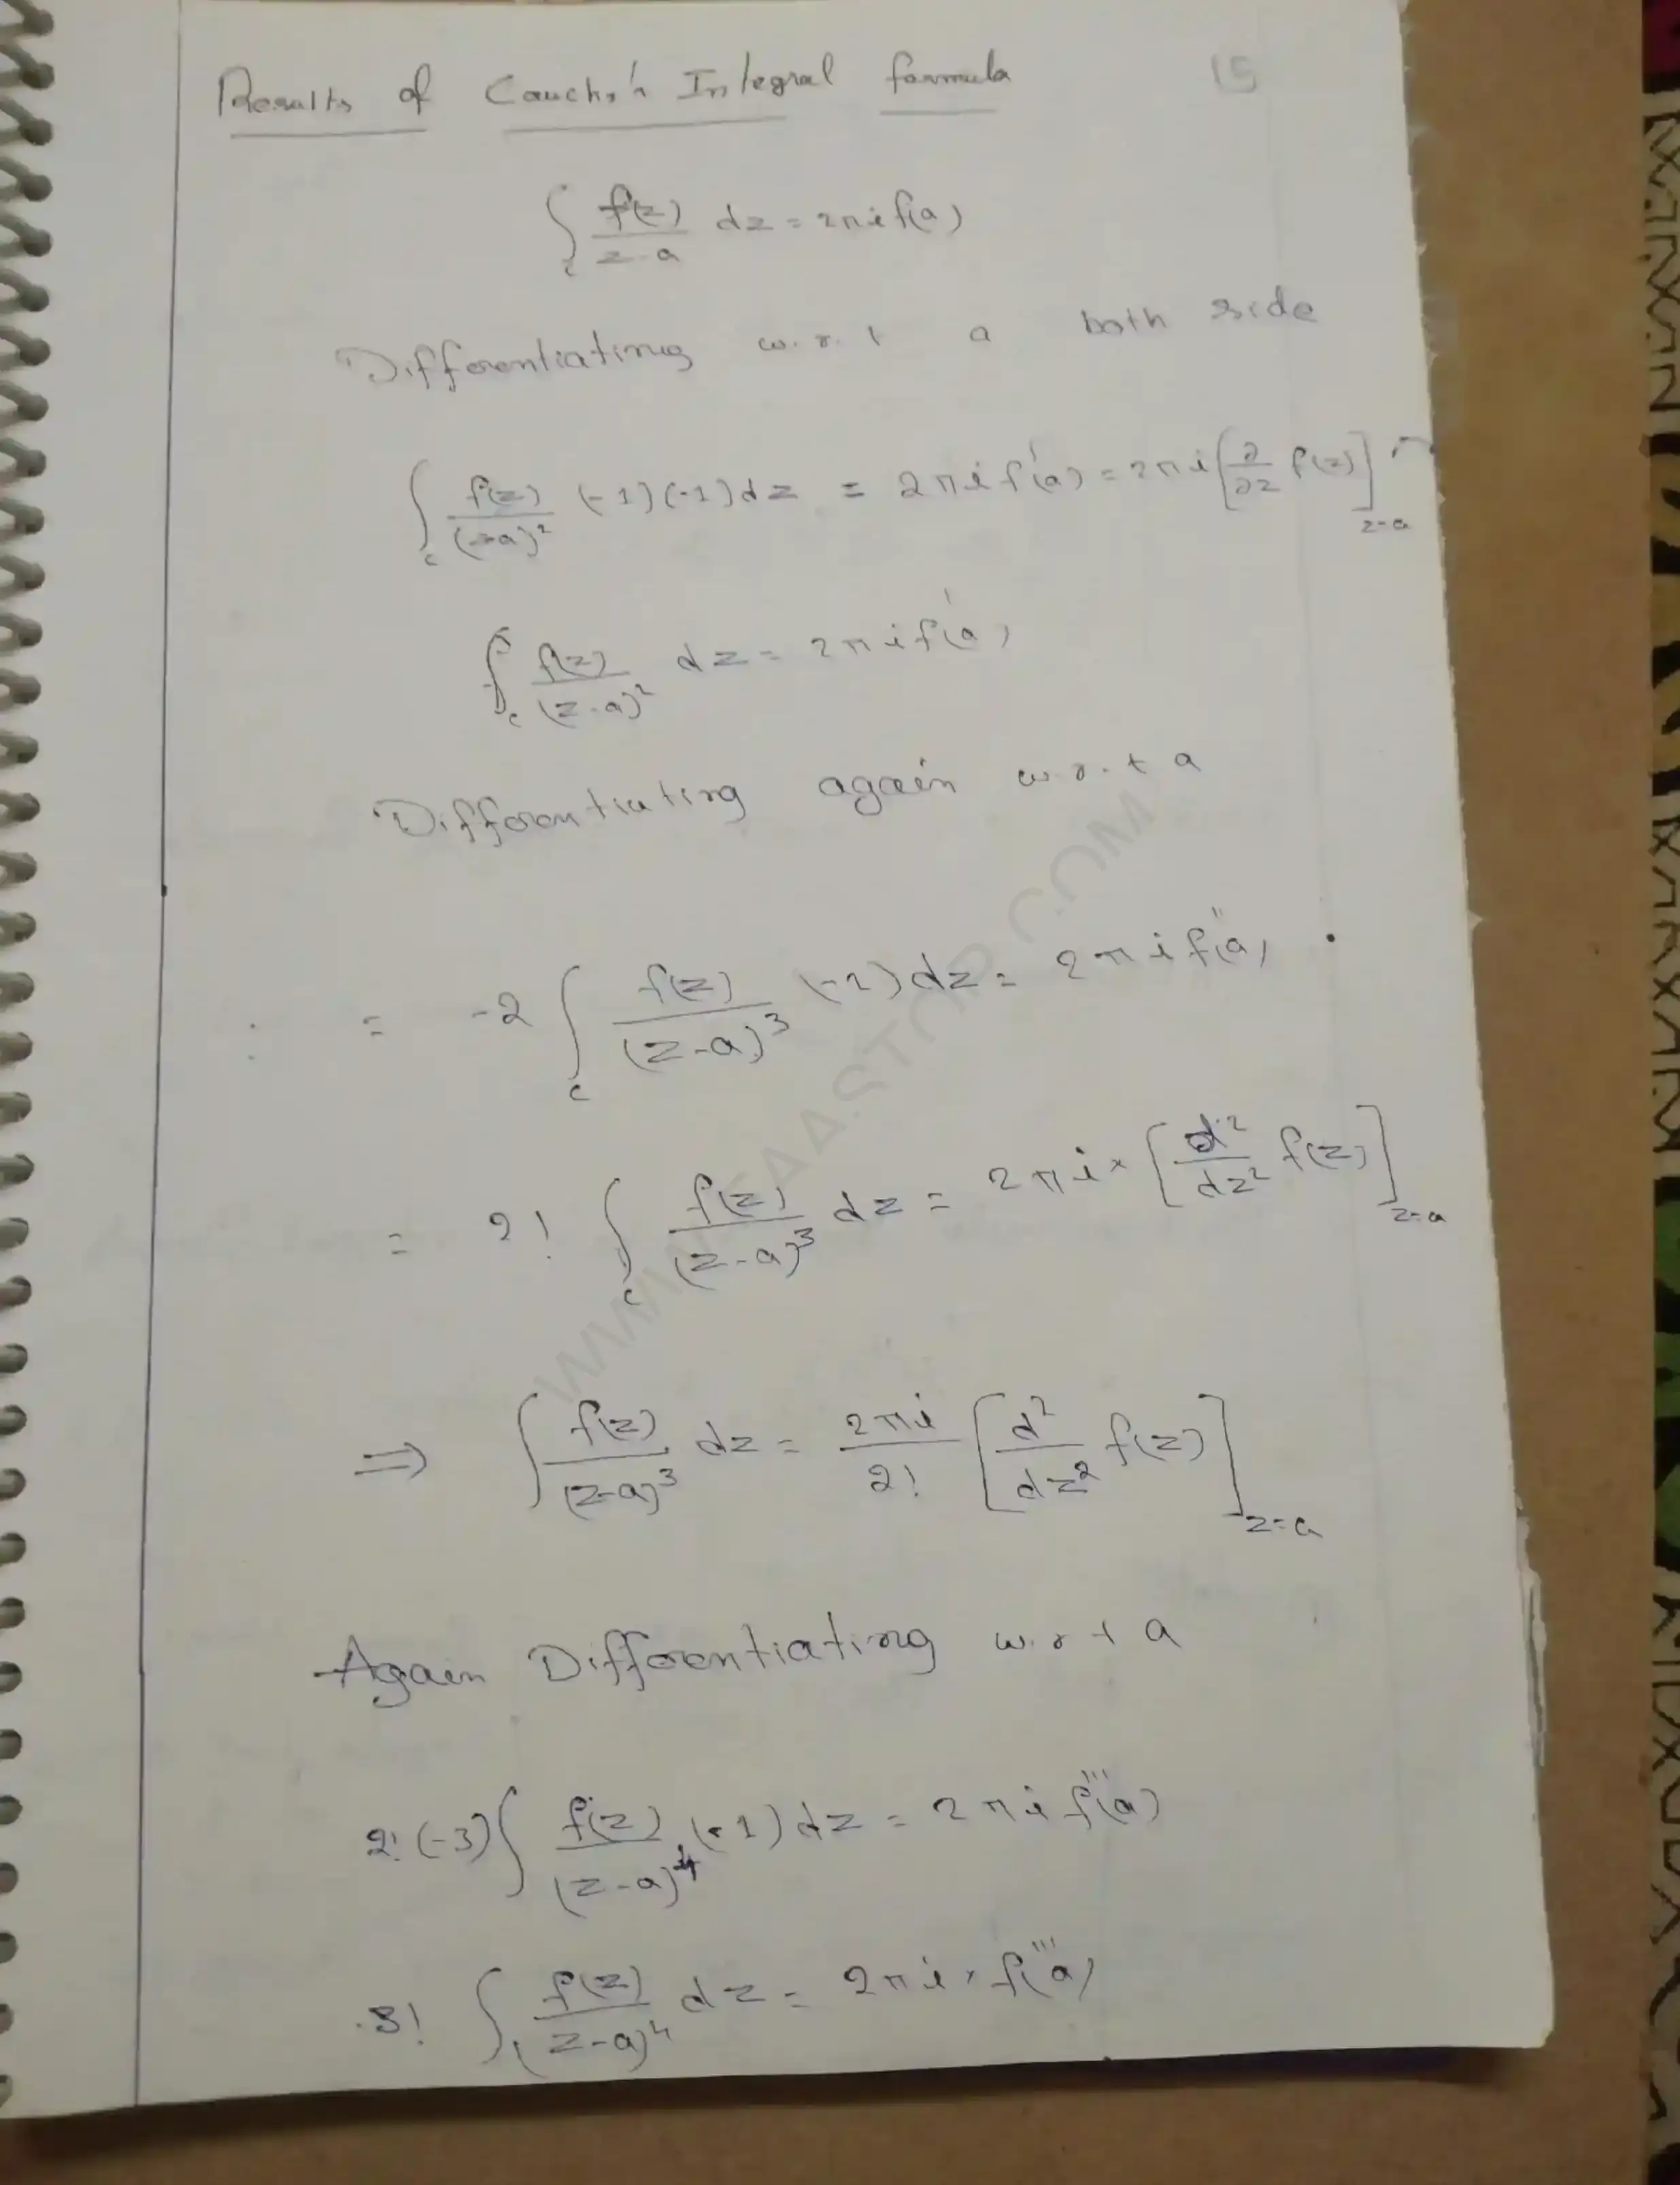 Results of Cauchy's Integral formula 15
∫_c f(z)/(z-a) dz = 2πi f(a)
Differentiating w.r.t a both side
∫_c f(z)/(z-a)² (-1)(-1) dz = 2πi f'(a) = 2πi [∂/∂z f(z)]_{z=a}
∫_c f(z)/(z-a)² dz = 2πi f'(a)
Differentiating again w.r.t a
= -2 ∫_c f(z)/(z-a)³ (-1) dz = 2πi f''(a)
= 2! ∫_c f(z)/(z-a)³ dz = 2πi × [d²/dz² f(z)]_{z=a}
⇒ ∫ f(z)/(z-a)³ dz = 2πi/2! [d²/dz² f(z)]_{z=a}
Again Differentiating w.r.t a
2! (-3) ∫ f(z)/(z-a)⁴ (-1) dz = 2πi f'''(a)
3! ∫_c f(z)/(z-a)⁴ dz = 2πi × f'''(a)